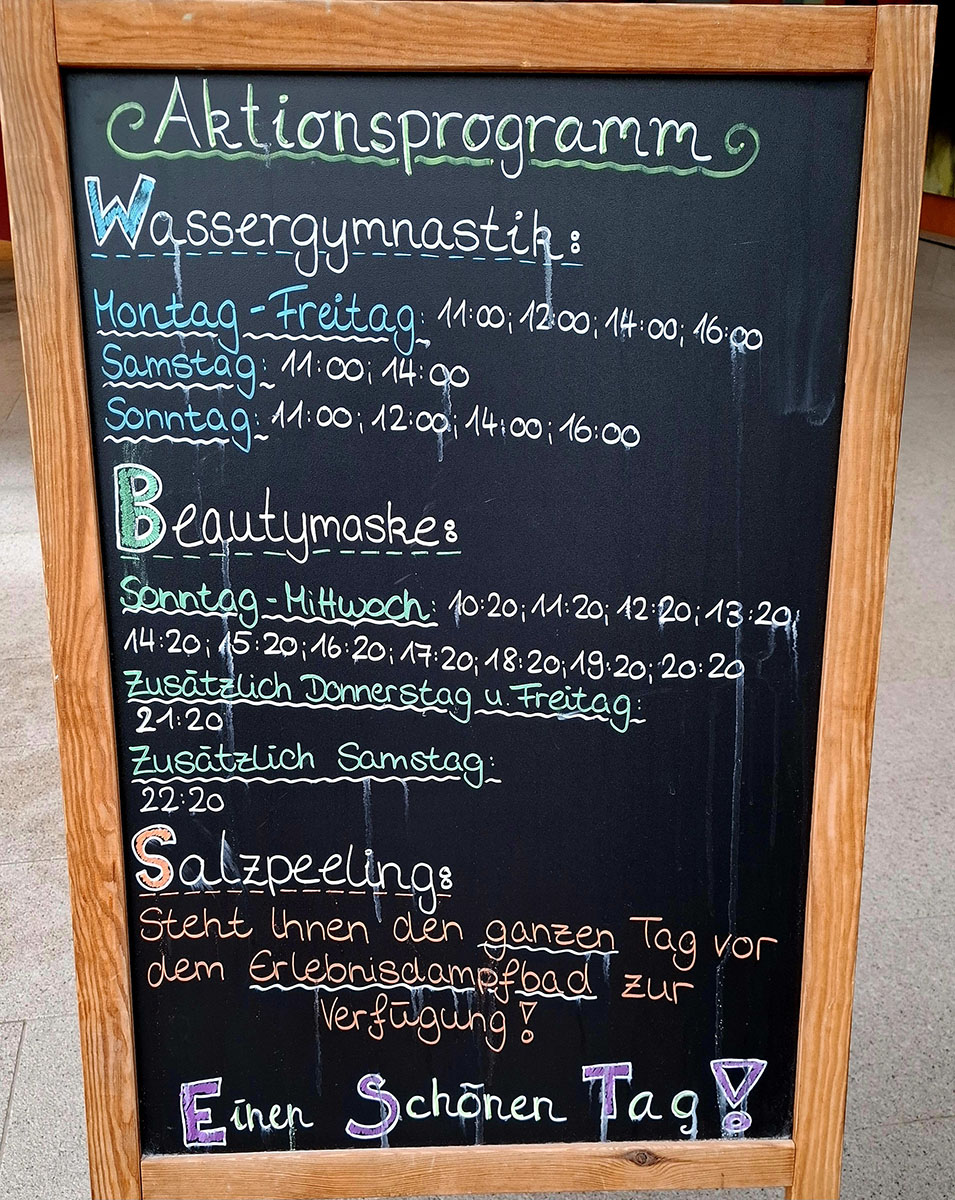 Aktionsprogramm
Wassergymnastik:
Montag - Freitag: 11:00; 12:00; 14:00; 16:00
Samstag: 11:00; 14:00
Sonntag: 11:00; 12:00; 14:00; 16:00
Beautymaske:
Sonntag - Mittwoch: 10:20; 11:20; 12:20; 13:20;
14:20; 15:20; 16:20; 17:20; 18:20; 19:20; 20:20
Zusätzlich Donnerstag u. Freitag:
21:20
Zusätzlich Samstag:
22:20
Salzpeeling:
Steht Ihnen den ganzen Tag vor
dem Erlebnisdampfbad zur
Verfügung!
Einen Schönen Tag!